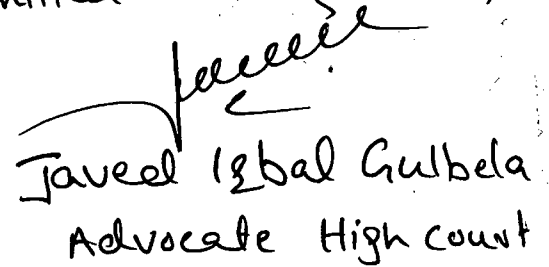 Javed Iqbal Gulbela
Advocate High Court